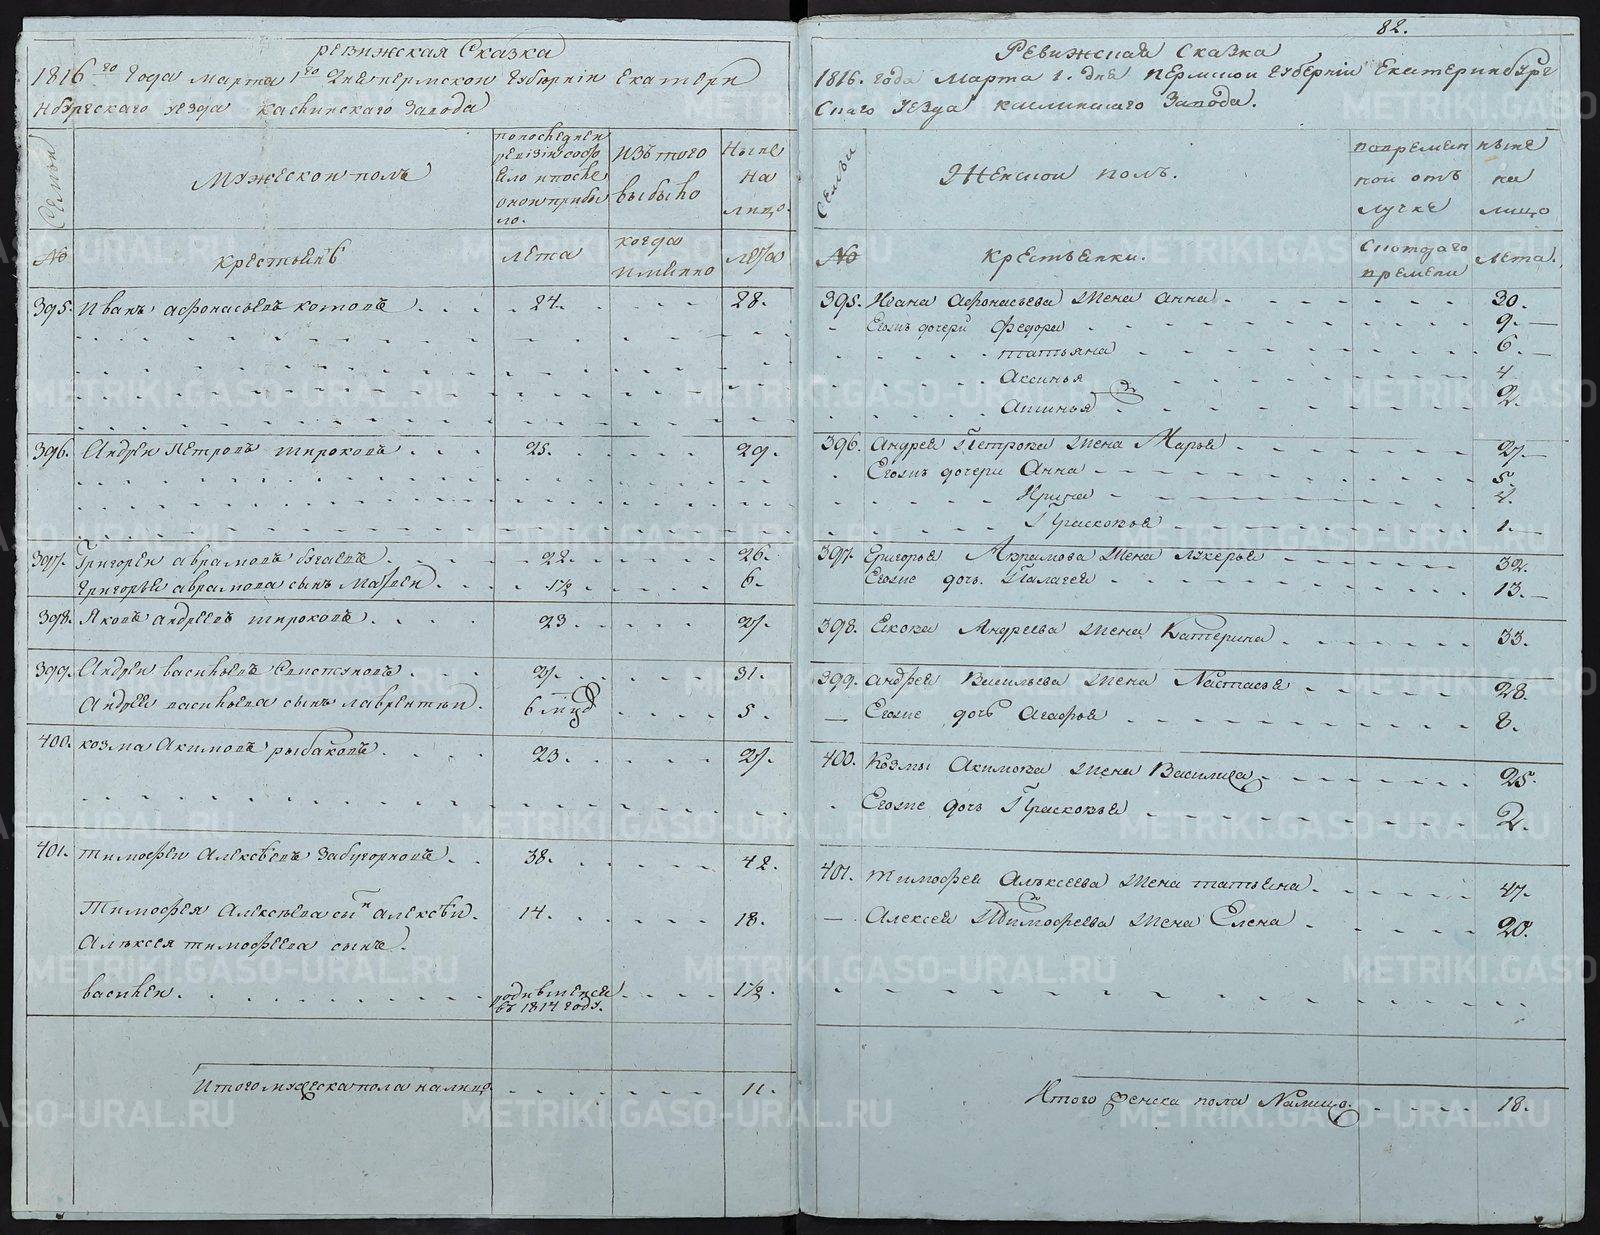 ревижская Сказка
1816го Года марта 1го Дне пермской губернiи екатери
нбургскаго уезда Каслинскаго Завода
Семьи
Мужеской полъ
попоследнеи ревизiи состояло и после оной прибыло.
Изъ того выбыло
Ныне на лицо.
№
крестьянъ
лѣта
когда имянно
лѣта
395. Иванъ афонасьевъ котовъ . . . 24. 28.
396. Андреи Петровъ широковъ . . . 25. 29.
397. Григореи аврамовъ бугаевъ . . . 22. 26.
Григорья аврамова сынъ Матвеи . . . 1½ 6.
398. Яковъ андреевъ широковъ . . . 23. 27.
399. Андреи васильевъ Свистуновъ . . . 27. 31.
Андрея васильева сынъ лаврентеи . 5.
400. козма Акимовъ рыбаковъ . . . 23. 27.
401. тимофеи Алексѣевъ Забугорновъ . . 38. 42.
Тимофея Алексѣева сынъ алексѣи . 14. 18.
Алѣксея тимофеева сынъ
василеи . . . родившейся въ 1814 году. 1½.
Итого мужеска пола налицо . . . 11.
82.
Ревижская Сказка
1816. года Марта 1. дня пермской губернiи Екатеринбург
скаго уезда каслинскаго Завода.
Семьи
Женской полъ.
вовременной отълучке
ныне на лицо
№
крестьянки.
Скотораго времени
Лѣта.
395. Ивана Афонасьева жена анна . . . 30.
Еговы дочери Федора . . . 9.
татьяна . . . 6.
Аксинья . . . 4
. . . 2.
396. Андрея Петрова жена Марья . . . 27
Еговы дочери Анна . . . 5.
Ирина . . . 4.
Прасковья . . . 1.
397. Григорья Аврамова жена лукерья . . . 32.
Еговая дочь Палагея . . . 13.
398. Якова Андреева жена Катерина . . . 33.
399. андрея Васильева жена Настасья . . . 28.
Еговая дочь Агафья . . . 8.
400. Козмы Акимова жена Василиса . . . 25.
Еговая дочь Прасковья . . . 2.
401. тимофея Алѣксеева жена татьяна . . . 47.
Алексея Тимофеева жена Елена . . . 20.
Итого женска пола Налицо . . . 18.
METRIKI.GASO-URAL.RU